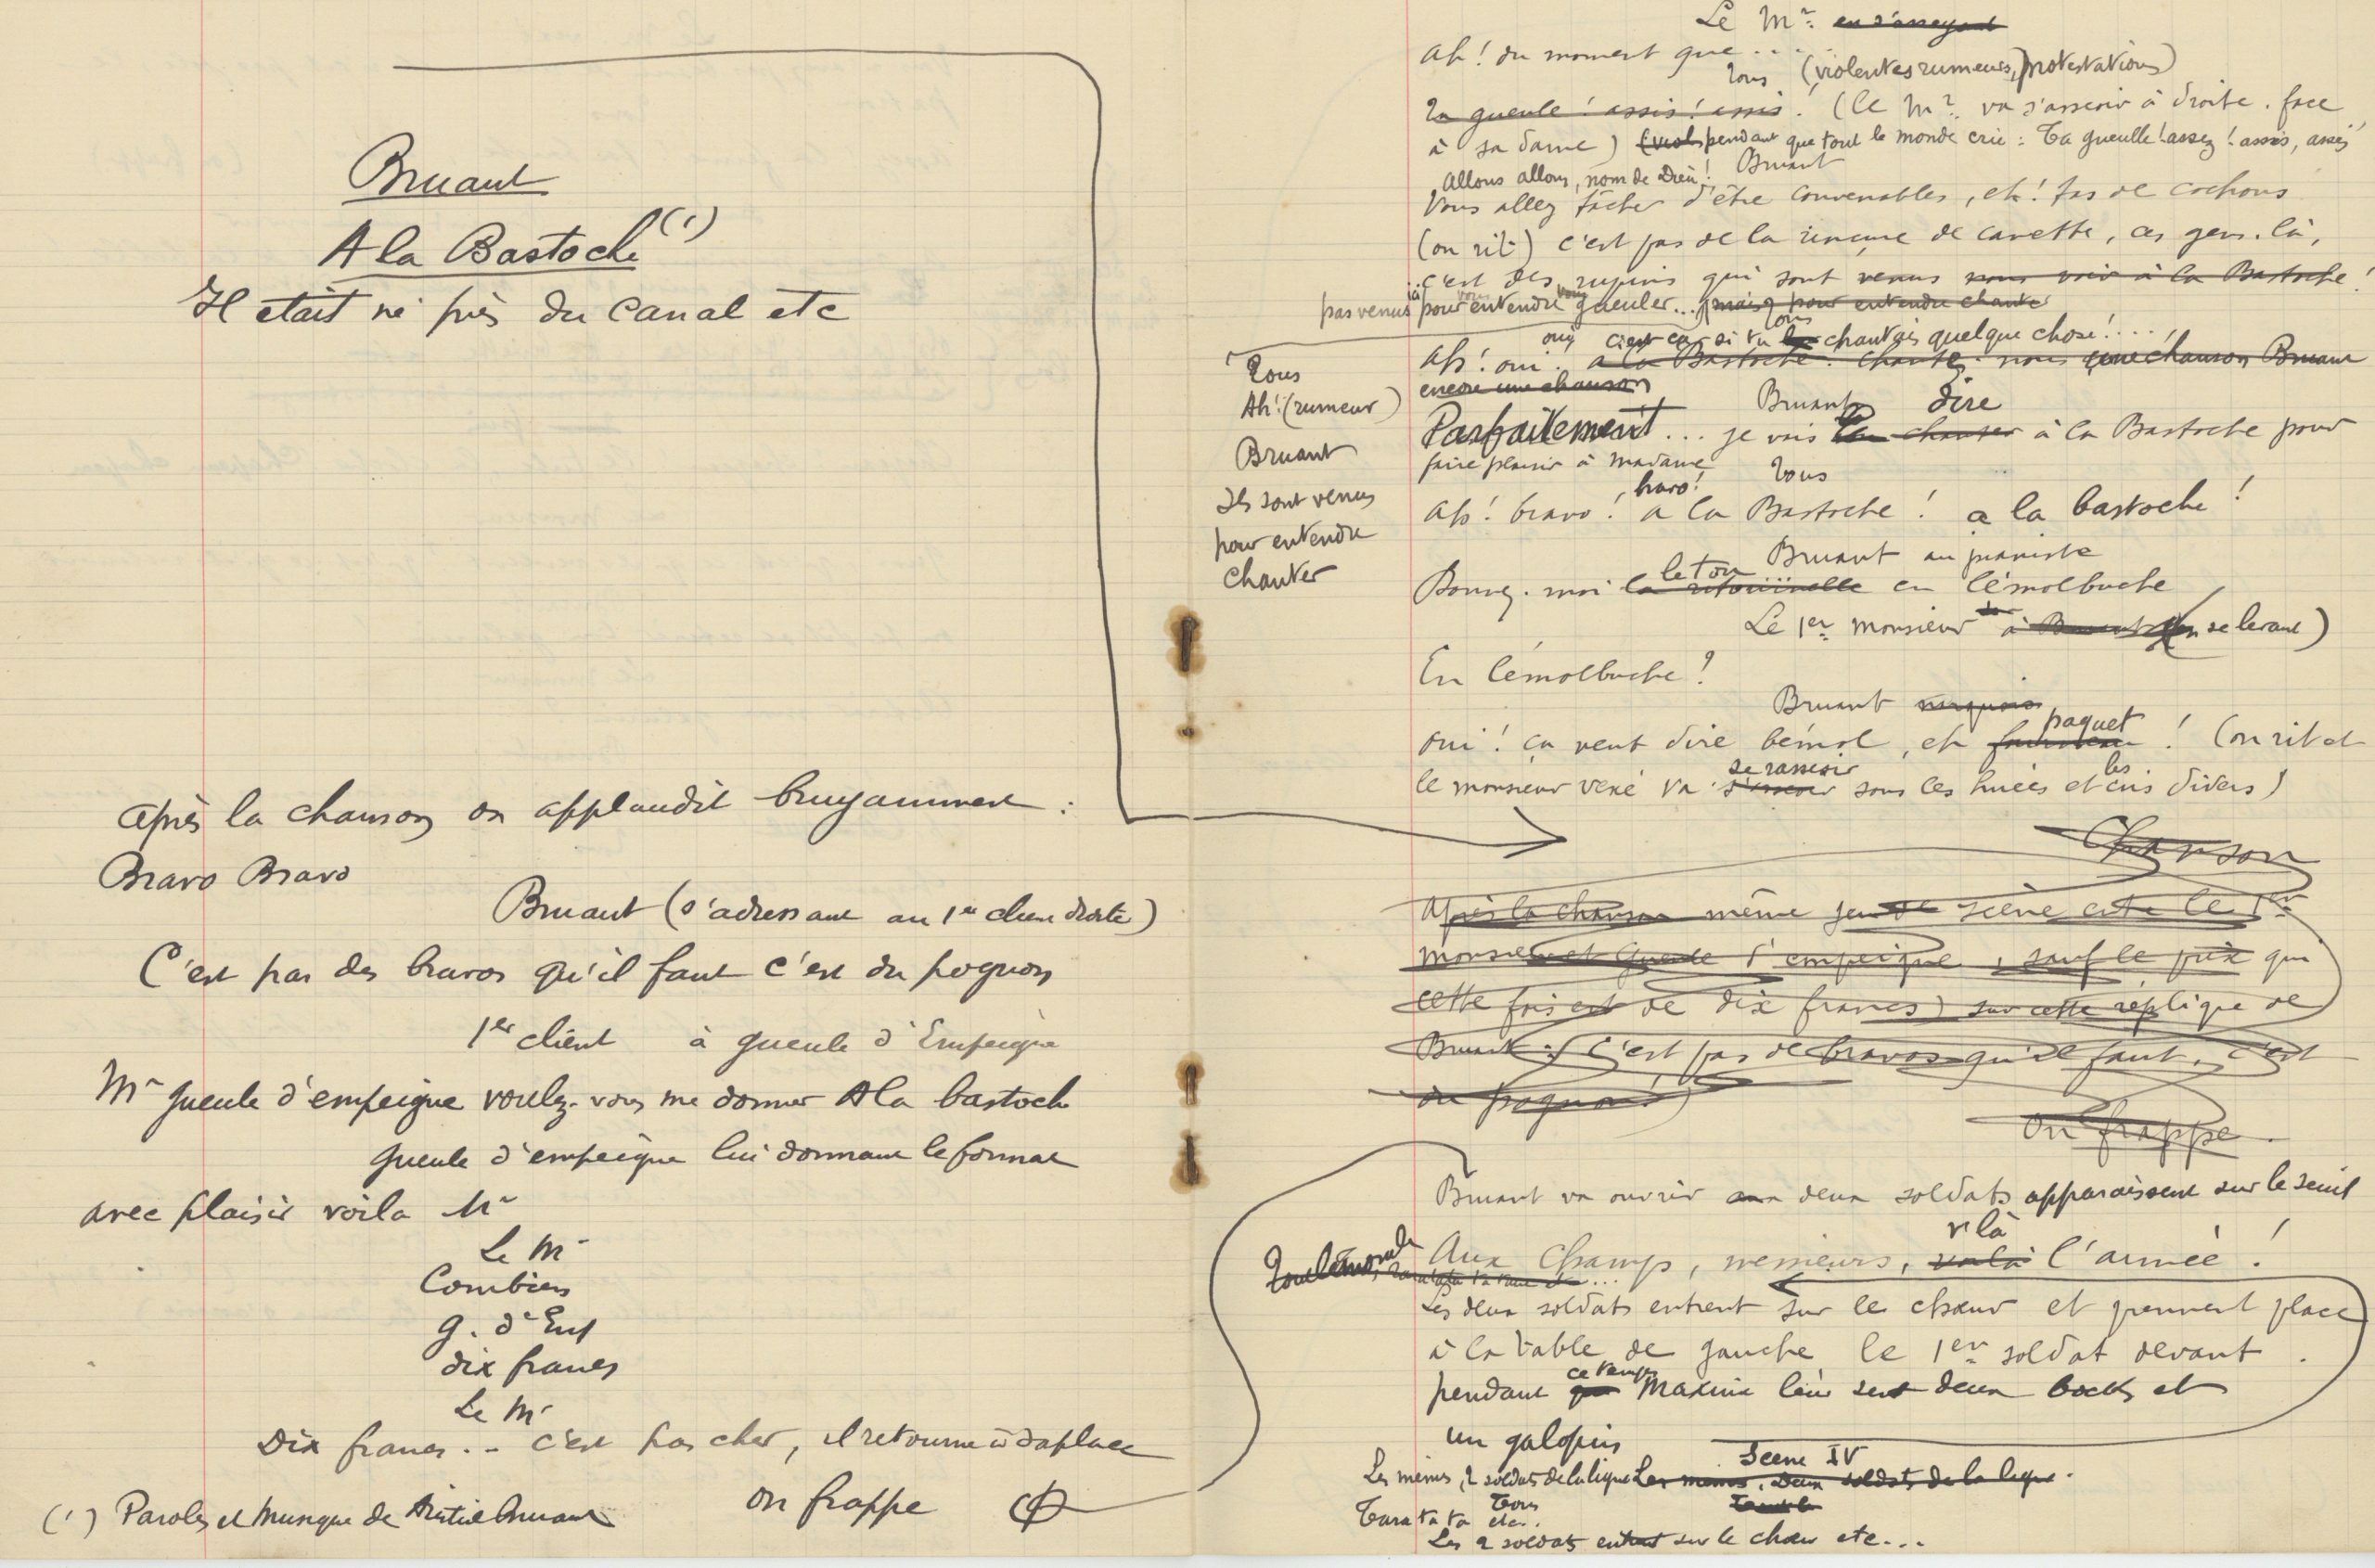 Bruant
A la Bastoche (1)
Il était né près du canal etc
après la chanson on applaudit bruyamment :
Bravo Bravo
Bruant (s'adressant au 1er client droite)
C'est pas des bravos qu'il faut c'est du pognon
1er client à gueule d'Empeigne
Mr gueule d'empeigne voulez-vous me donner A la bastoch
gueule d'empeigne lui donnant le format
avec plaisir voila Mr
Le Mr
Combien
g. d'Emp
dix francs
Le Mr
Dix francs .. c'est pas cher, il retourne à sa place
on frappe
(1) Paroles et Musique de Aristide Bruant
Le Mr en s'asseyant
Ah ! du moment que ...
Tous (violentes rumeurs, protestations)
Ta gueule ! assis ! assis ! (le Mr va s'asseoir à droite. face
à sa dame) pendant que tout le monde crie : Ta gueulle ! assez ! assis, assez
Allons allons, nom de Dieu ! Bruant
Vous allez tâcher d'être convenables, eh ! tas de cochons
(on rit) c'est pas de la rinçure de canette, ces gens-là,
c'est des rupins qui sont venus nous voir à la Bastoche !
pas venus ici pour vous entendre gueuler... mais pour entendre chanter
Tous
Ah ! (rumeur)
Bruant
Ils sont venus
pour entendre
chanter
Tous
oui c'est ça si tu chantais quelque chose !...
Ah ! oui ! a la Bastoche. chante-nous une chanson Bruant
encore une chanson
Bruant dire
Parfaitement... je vais la chanter à la Bastoche pour
faire plaisir à madame
Tous
Ah ! bravo ! bravo ! a la Bastoche ! a la bastoche !
Bruant au pianiste
le ton
Donnez-moi la ritournelle en lémolbuche
Le 1er monsieur à Bruant (en se levant)
En lémolbuche ?
Bruant narquois
paquet
oui ! ça veut dire bémol, eh ! (on rit et
se rasseoir
le monsieur vexé va s'asseoir sous les huées et les cris divers)
Chanson
Après la chanson même jeu de scène entre le 1er
monsieur et Gueule d'empeigne, sauf le prix qui
cette fois est de dix francs) sur cette réplique de
Bruant : (C'est pas de bravos qu'il faut, c'est
du pognon !)
on frappe.
Bruant va ouvrir deux soldats apparaissent sur le seuil
v'là
Tout le monde Aux Champs, messieurs, voilà l'armée !
Les deux soldats entrent sur le chœur et prennent place
à la table de gauche le 1er soldat devant.
pendant ce temps Maxime leur sert deux bocks et
un galopin
Scene IV
Les mêmes, 2 soldats de la ligne Les mêmes, Deux soldats de la ligne.
Tous
Tara ta ta etc..
Les 2 soldats entrent sur le chœur etc...